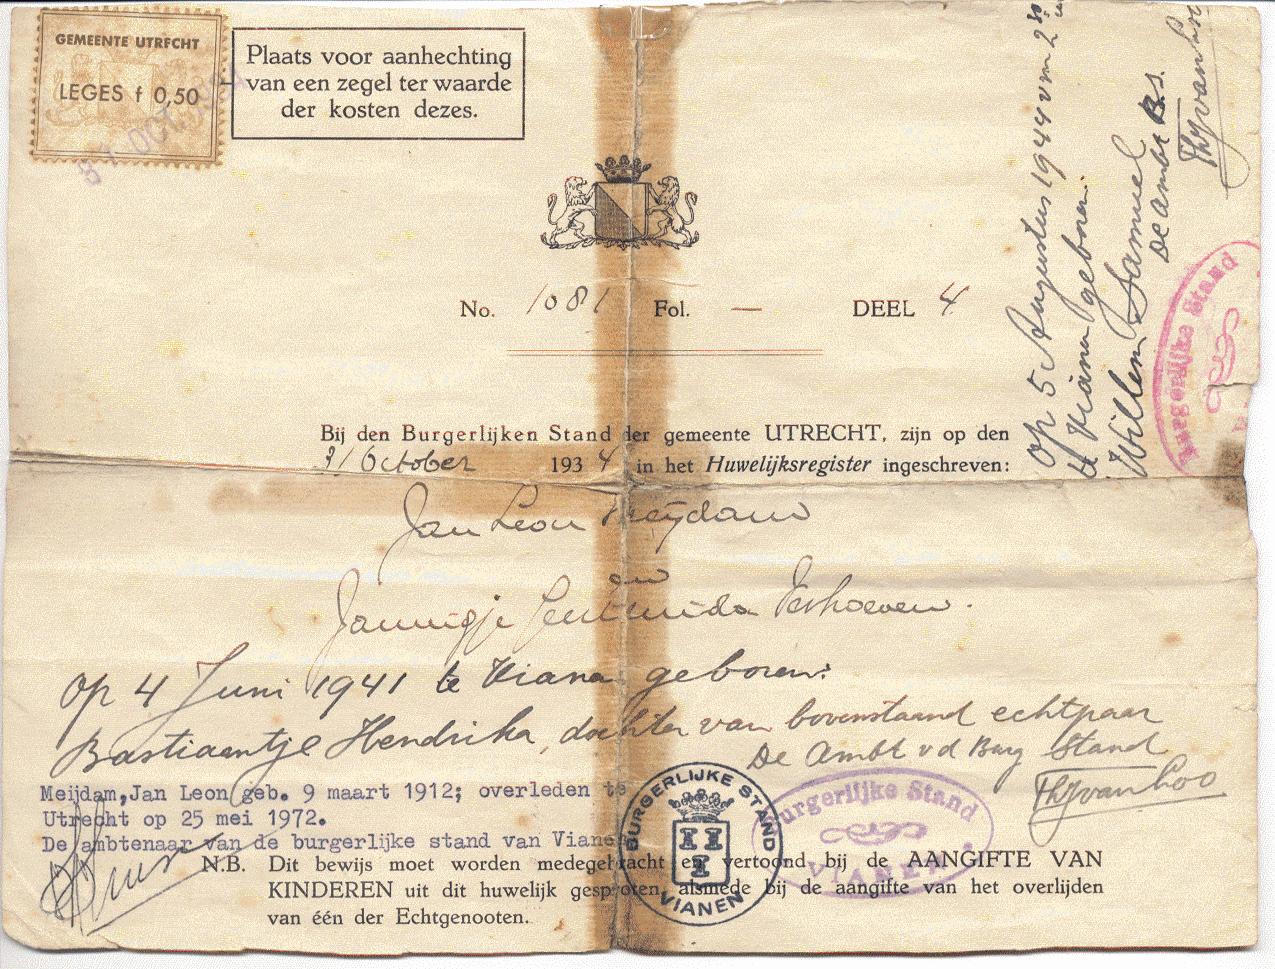 GEMEENTE UTRECHT
LEGES f 0,50
31 OCT. 1934
Plaats voor aanhechting
van een zegel ter waarde
der kosten dezes.
No. 1081 Fol. — DEEL 4
Bij den Burgerlijken Stand der gemeente UTRECHT, zijn op den
31 October 1934 in het Huwelijksregister ingeschreven:
Jan Leon Meijdam
en
Jannigje Geertruida Verhoeven.
Op 4 Juni 1941 te Viana geboren:
Bastiaantje Hendrika, dochter van bovenstaand echtpaar
De Ambt vd Burg Stand
ThJvanLoo
Meijdam,Jan Leon geb. 9 maart 1912; overleden te
Utrecht op 25 mei 1972.
De ambtenaar van de burgerlijke stand van Vianen
N.B. Dit bewijs moet worden medegebracht en vertoond bij de AANGIFTE VAN
KINDEREN uit dit huwelijk gesproten, alsmede bij de aangifte van het overlijden
van één der Echtgenooten.
BURGERLIJKE STAND
VIANEN
Burgerlijke Stand
VIANEN
Op 5 Augustus 1944 vm 2
te Viana geboren:
Willem Samuel
De Ambt B.S.
ThJvanLoo
Burgerlijke Stand